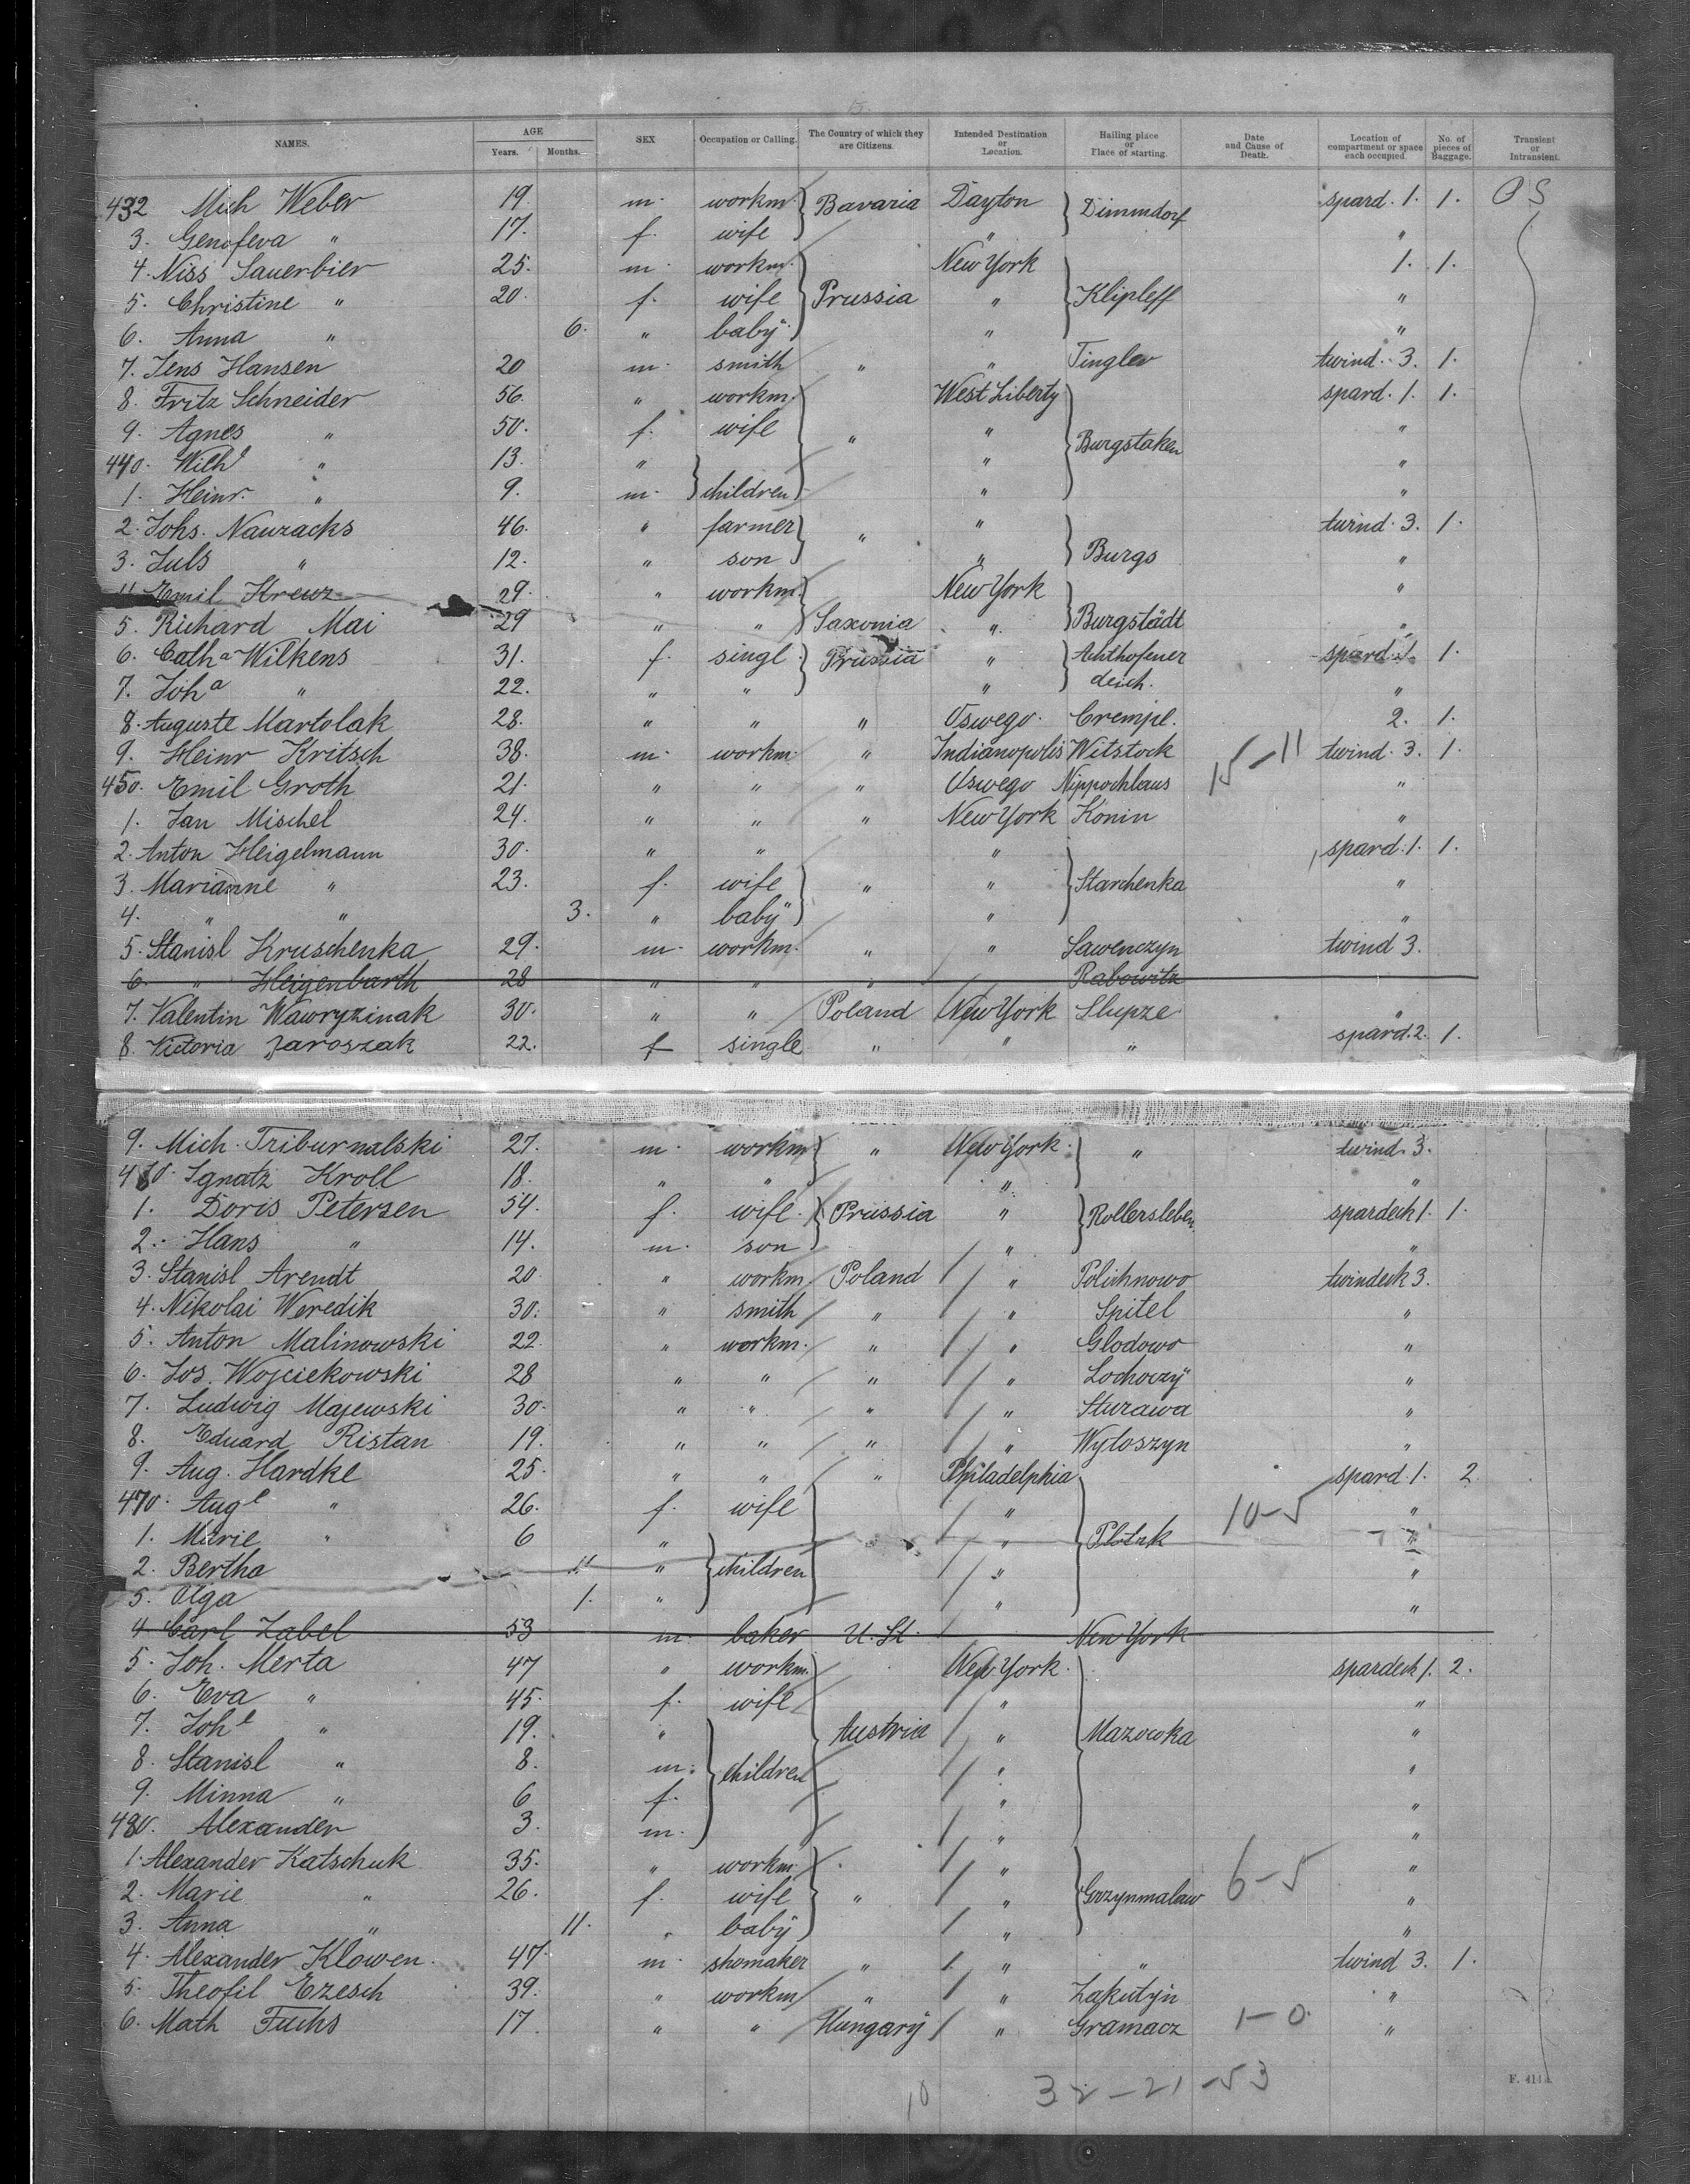 15.
NAMES. AGE Years. Months. SEX Occupation or Calling. The Country of which they are Citizens. Intended Destination or Location. Hailing place or Place of starting. Date and Cause of Death. Location of compartment or space each occupied. No. of pieces of Baggage. Transient or Intransient.
432 Mich Weber 19. m. workm. Bavaria Dayton Dimmdorf spard. 1. 1. OS
3. Genofeva " 17. f. wife " "
4. Niss Sauerbier 25. m. workm. New York 1. 1.
5. Christine " 20. f. wife Prussia " Klipleff "
6. Anna " 6. " baby " "
7. Jens Hansen 20 m. smith " " Tinglev twind. 3. 1.
8. Fritz Schneider 56. " workm. West Liberty spard. 1. 1.
9. Agnes " 50. f. wife " " Burgstaken "
440. Wilhe " 13. " " "
1. Heinr. " 9. m. children " "
2. Johs. Nauracks 46. " farmer " " twind. 3. 1.
3. Juls " 12. " son " Burgs "
Emil Kreuz 29. " workm. New York "
5. Richard Mai 29 " " Saxonia " Burgstädt "
6. Catha Wilkens 31. f. singl. Prussia " Achthofener spard. 1. 1.
7. Joha " 22. " " " deich. "
8. Auguste Martolak 28. " " " Oswego. Crempe. 2. 1.
9. Heinr Kritsch 38. m. workm. " Indianopolis Witstock 15-11 twind. 3. 1.
450. Emil Groth 21. " " " Oswego "
1. Jan Mischel 24. " " " New York Konin "
2. Anton Heigelmann 30. " " " spard. 1. 1.
3. Marianne " 23. f. wife " " Starchenka "
4. " " 3. " baby " "
5. Stanisl Kruschenka 29. m. workm. " " Sawenczyn twind 3.
6. " Heigenbarth 28 " " " Rabowitz
7. Valentin Wawryzinak 30. " " Poland New York Slupze "
8. Victoria Jaroszak 22. f single " " " spard. 2. 1.
9. Mich. Triburnalski 27. m. workm " New York. " twind. 3.
460. Ignatz Kroll 18. " " " "
1. Doris Petersen 54. f. wife. Prussia " Rollersleben spardeck 1. 1.
2. Hans " 14. m. son " "
3. Stanisl Arendt 20 " workm Poland " Polichnowo twindeck 3.
4. Nikolai Weredik 30. " smith " " Spitel "
5. Anton Malinowski 22. " workm. " " Glodowo "
6. Jos. Wojciekowski 28 " " " " Lochoczy "
7. Ludwig Majewski 30. " " " " Sturawa "
8. Eduard Ristan 19. " " " " Wyloszyn "
9. Aug. Hardke 25. " " " Philadelphia spard. 1. 2.
470. Auge " 26. f. wife " 10-5 "
1. Marie " 6 " " Plotzk "
2. Bertha 11 " children " "
3. Olga 1. " " "
4 Carl Zabel 53 m. baker U. St. New York
5. Joh. Merta 47 " workm. New York. spardeck 1. 2.
6. Eva " 45. f. wife " "
7. Johe " 19. " Austria " Mazowka "
8. Stanisl " 8. m. children " "
9. Minna " 6 f. " "
480. Alexander 3. m. " "
1. Alexander Katschuk 35. " workm. " "
2. Marie " 26. f. wife " " Grzynmalaw 6-5 "
3. Anna " 11. " baby " "
4. Alexander Klowen. 47 m. shomaker " " " twind 3. 1.
5. Theofil Ezesch 39. " workm " " Zakutyn "
6. Math Fuchs 17. " " Hungary " Gramacz 1-0 "
10 32-21-53
F. 411.